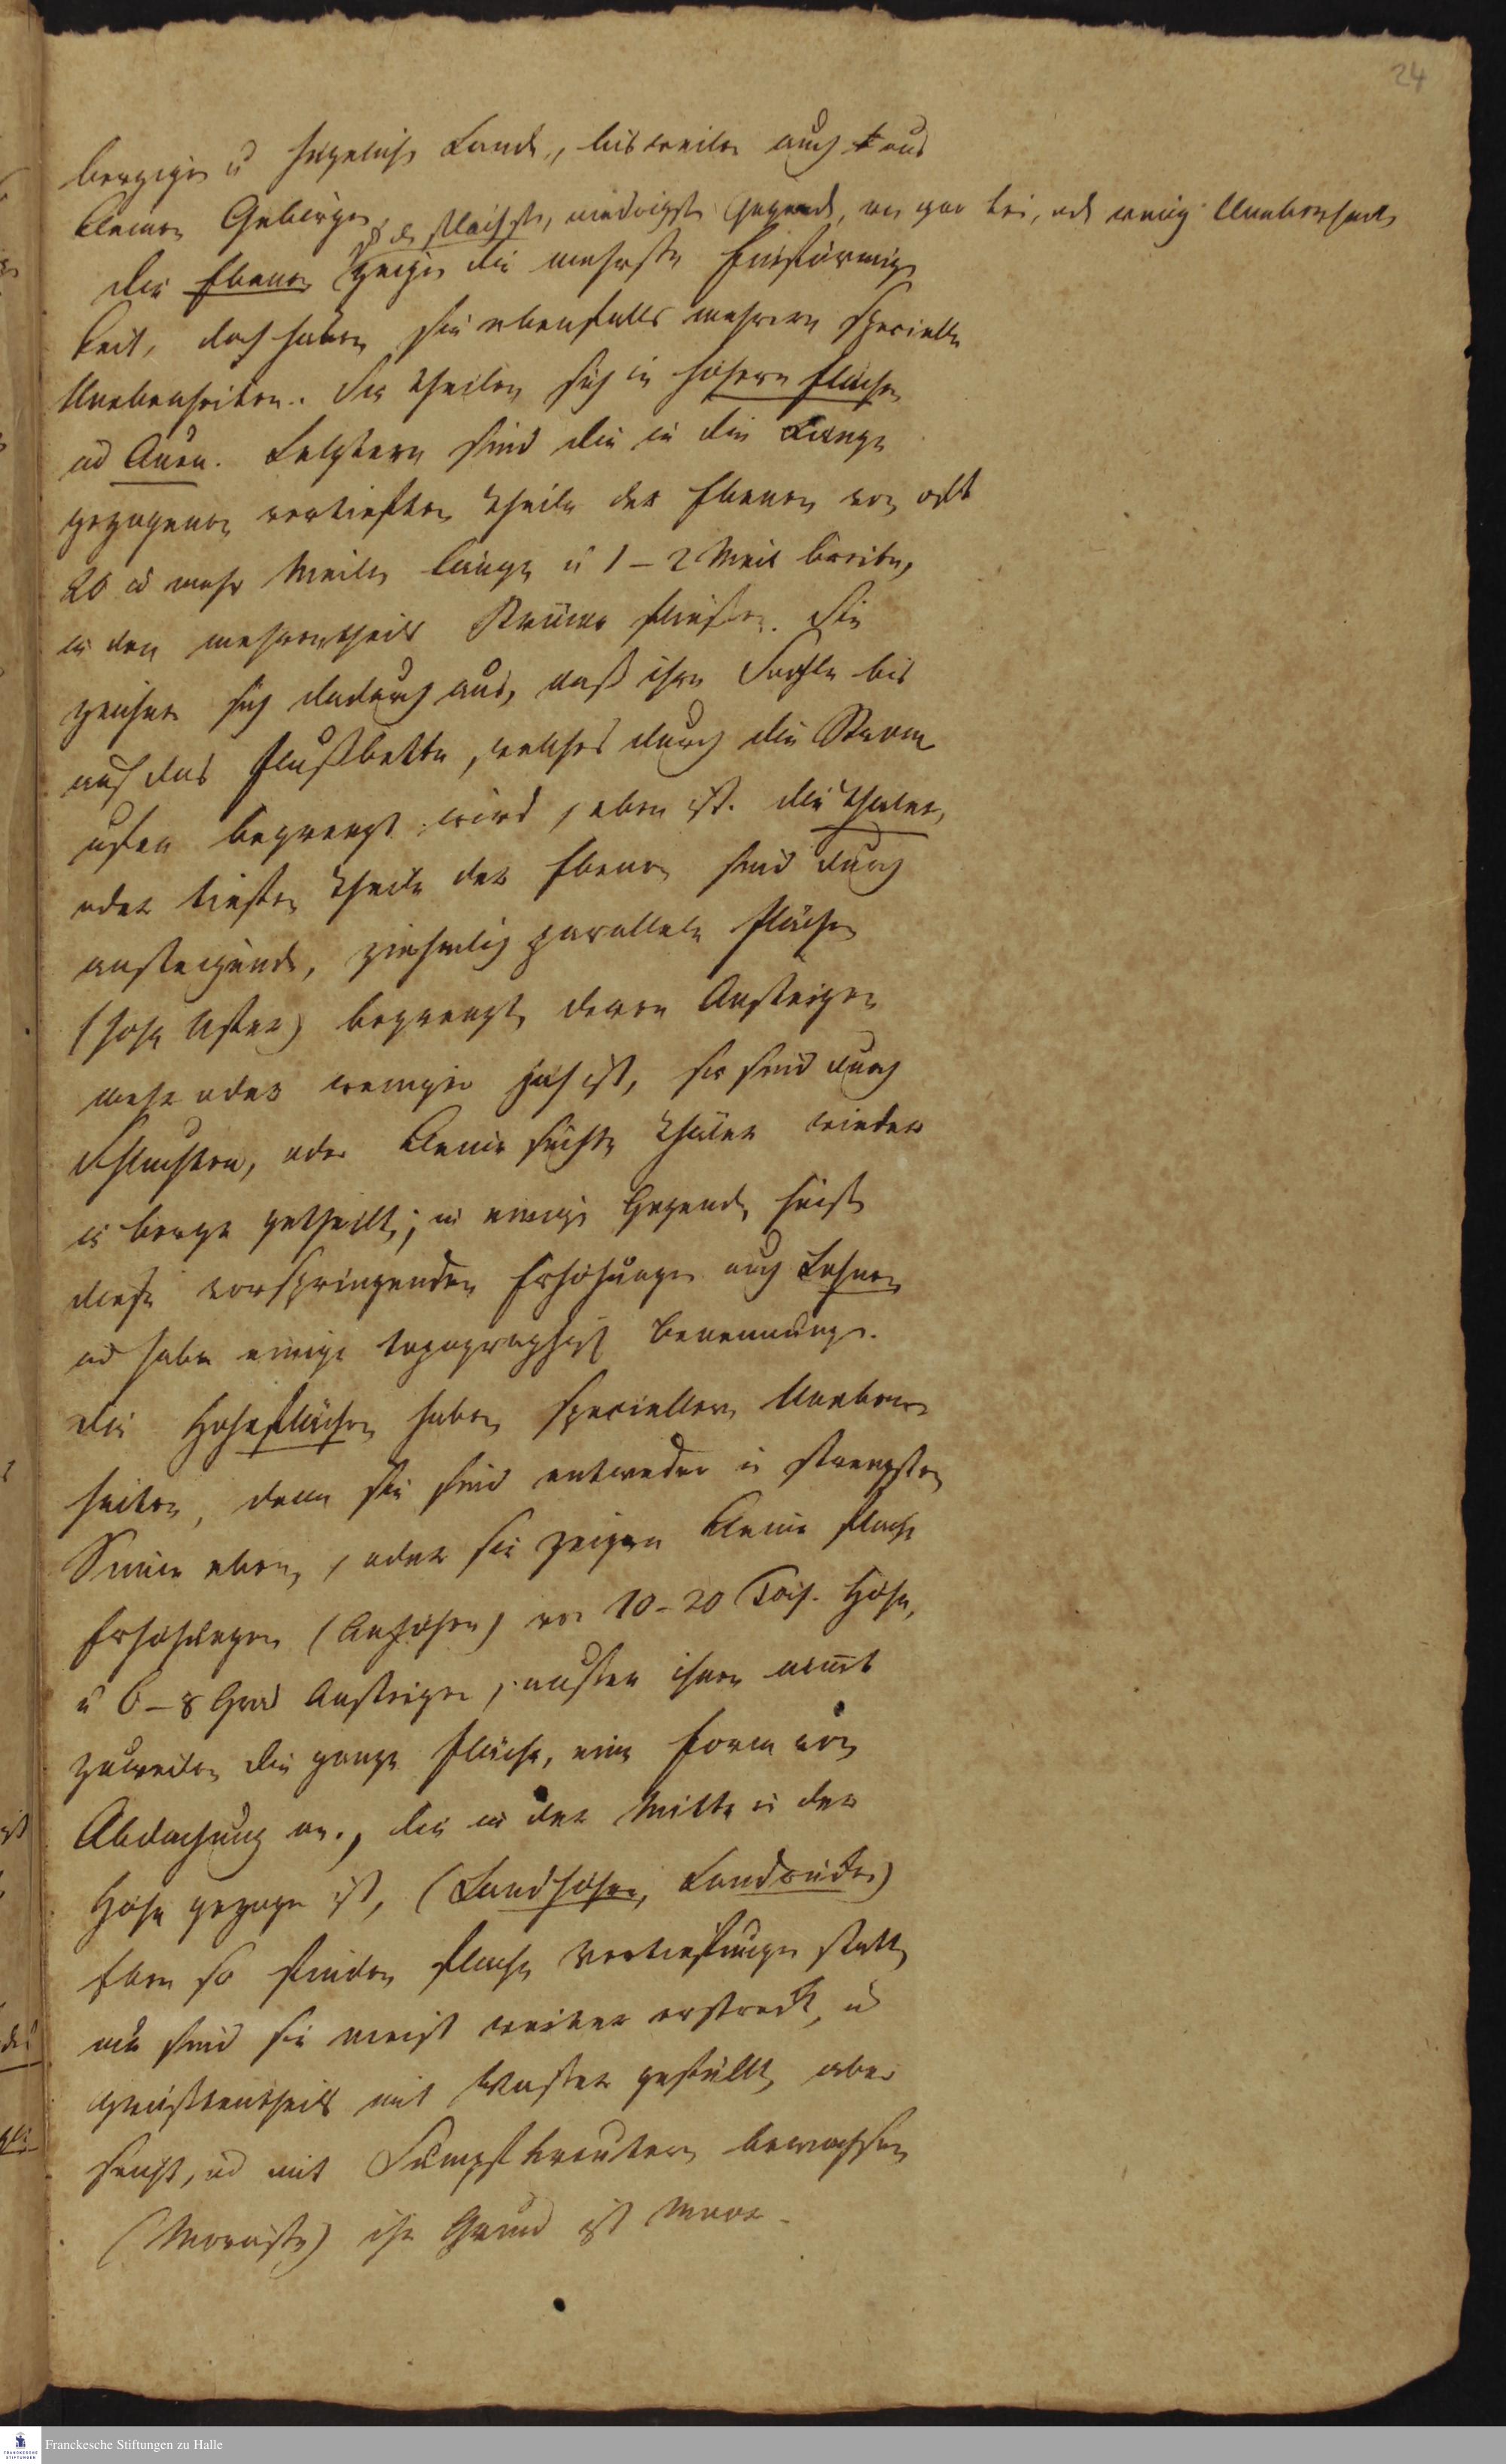 24
bergigen u hügelich Lande, bisweilen auch aus
kleinen Gebirgen
od. die flachste, niedrigste Gegend, wo gar kei, od wenig Unebenheit
die Ebenen zeigen die mehrste Einförmig
keit, doch haben sie ebenfalls mehrere specielle
Unebenheiten. Sie theilen sich in höhern Flächen
ud Auen. Letztern sind die in die Länge
gezogenen vertieften Theile der Ebenen von oft
20 u mehr Meilen Länge u 1-2 Meil breite,
in den mehrentheils Ströme fließen. Sie
zeichen sich dadurch aus, daß ihre Sohle bis
auf das Flußbette, welches durch die Strom
ufer begrenzt wird, eben ist. die Thäler,
oder tiefsten Theile der Ebenen sind durch
ansteigende, ziehmlich parallele Flächen
(hohe Ufer) begrenzt, deren Ansteigen
mehr oder weniger jäh ist, sie sind durch
Schluchten, oder kleine seichte Thäler wieder
in berge getheilt; in einige Gegenden heist
diese vorspringenden Erhöhungen auch Lehnen
ud habe einige topographisch Benennunge.
die Hoheflächen haben speciellere Uneben
heiten, denn sie sind entweder in strengsten
Sinne eben, oder sie zeigen kleine flache
Erhöhungen (Anhöhen) von 10-20 Tois. Höhe,
u 6-8 Grad Ansteigen, ausser ihnen nimt
zuweilen die ganze Fläche, eine Form von
Abdachung an, die in der Mitte in der
Höhe gezogen ist, (Landhöhen, Landrücken)
Eben so finden flache Vertiefungen statt,
nur sind sie meist weiter erstreckt, u
größtentheils mit Wasser gefüllt, aber
seicht, ud mit Sumpfkräutern bewachsen
(Moräste) ihr Grund ist Moor.
Franckesche Stiftungen zu Halle